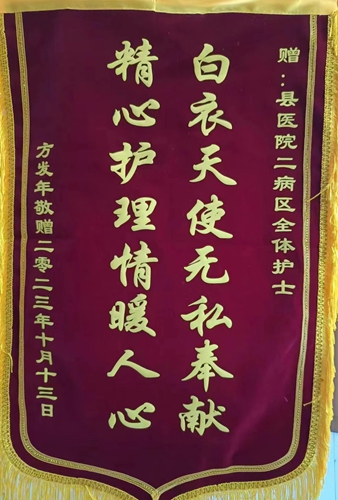 赠：县医院二病区全体护士
白衣天使无私奉献
精心护理情暖人心
方发年敬赠二零二三年十月十三日